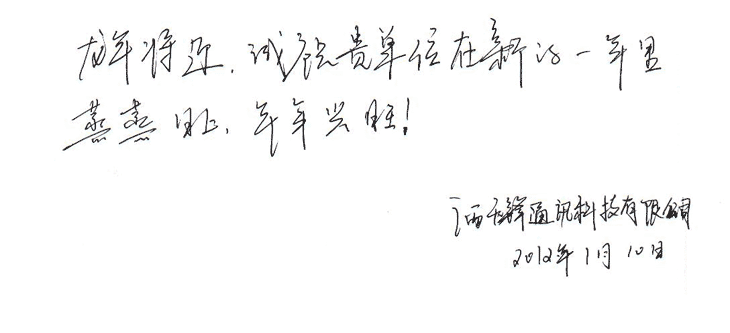 龙年将至，诚祝贵单位在新的一年里
蒸蒸日上，年年兴旺！
江西天锋通讯科技有限公司
2012年1月10日